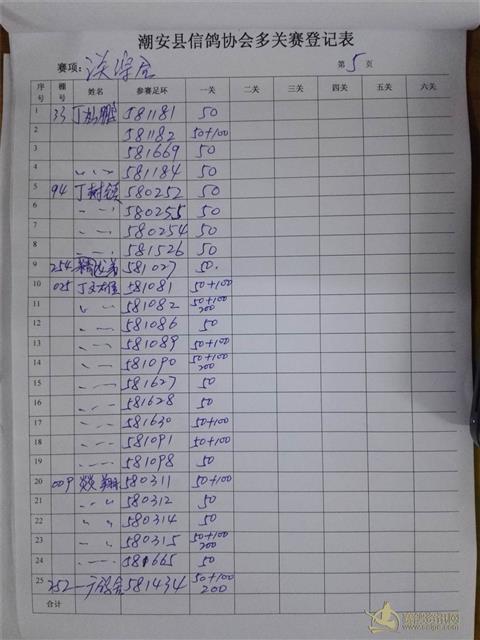 潮安县信鸽协会多关赛登记表
赛项: 第5页
序号 棚号 姓名 参赛足环 一关 二关 三关 四关 五关 六关
1 33 丁 鹏 581181 50
2 581182 50+100
3 581669 50
4 〃 〃 〃 581184 50
5 94 丁树镇 580252 50
6 〃 〃 〃 580255 50
7 〃 〃 〃 580254 50
8 〃 〃 〃 581526 50
9 254 581027 50.
10 025 丁 581081 50+100
11 〃 〃 〃 581082 50+100 200
12 〃 〃 〃 581086 50
13 〃 〃 〃 581089 50+100
14 〃 〃 〃 581090 50+100 200
15 〃 〃 〃 581627 50
16 〃 〃 〃 581628 50
17 〃 〃 〃 581630 50+100
18 〃 〃 〃 581091 50+100
19 〃 〃 〃 581098 50
20 009 580311 50+100
21 〃 〃 〃 580312 50
22 〃 〃 580314 50
23 〃 〃 580315 50+100 200
24 〃 〃 〃 581665 50
25 252 一于鸽舍 581434 50+100 200
合计